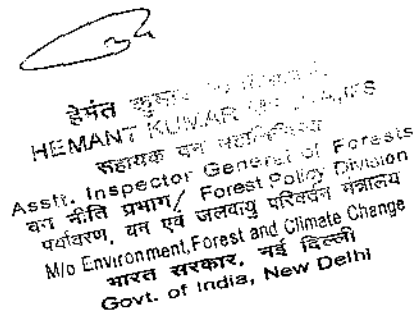 हेमंत कुमार
HEMANT KUMAR IFS
सहायक वन महानिरीक्षक
Asstt. Inspector General of Forests
वन नीति प्रभाग / Forest Policy Division
पर्यावरण, वन एवं जलवायु परिवर्तन मंत्रालय
M/o Environment, Forest and Climate Change
भारत सरकार, नई दिल्ली
Govt. of India, New Delhi